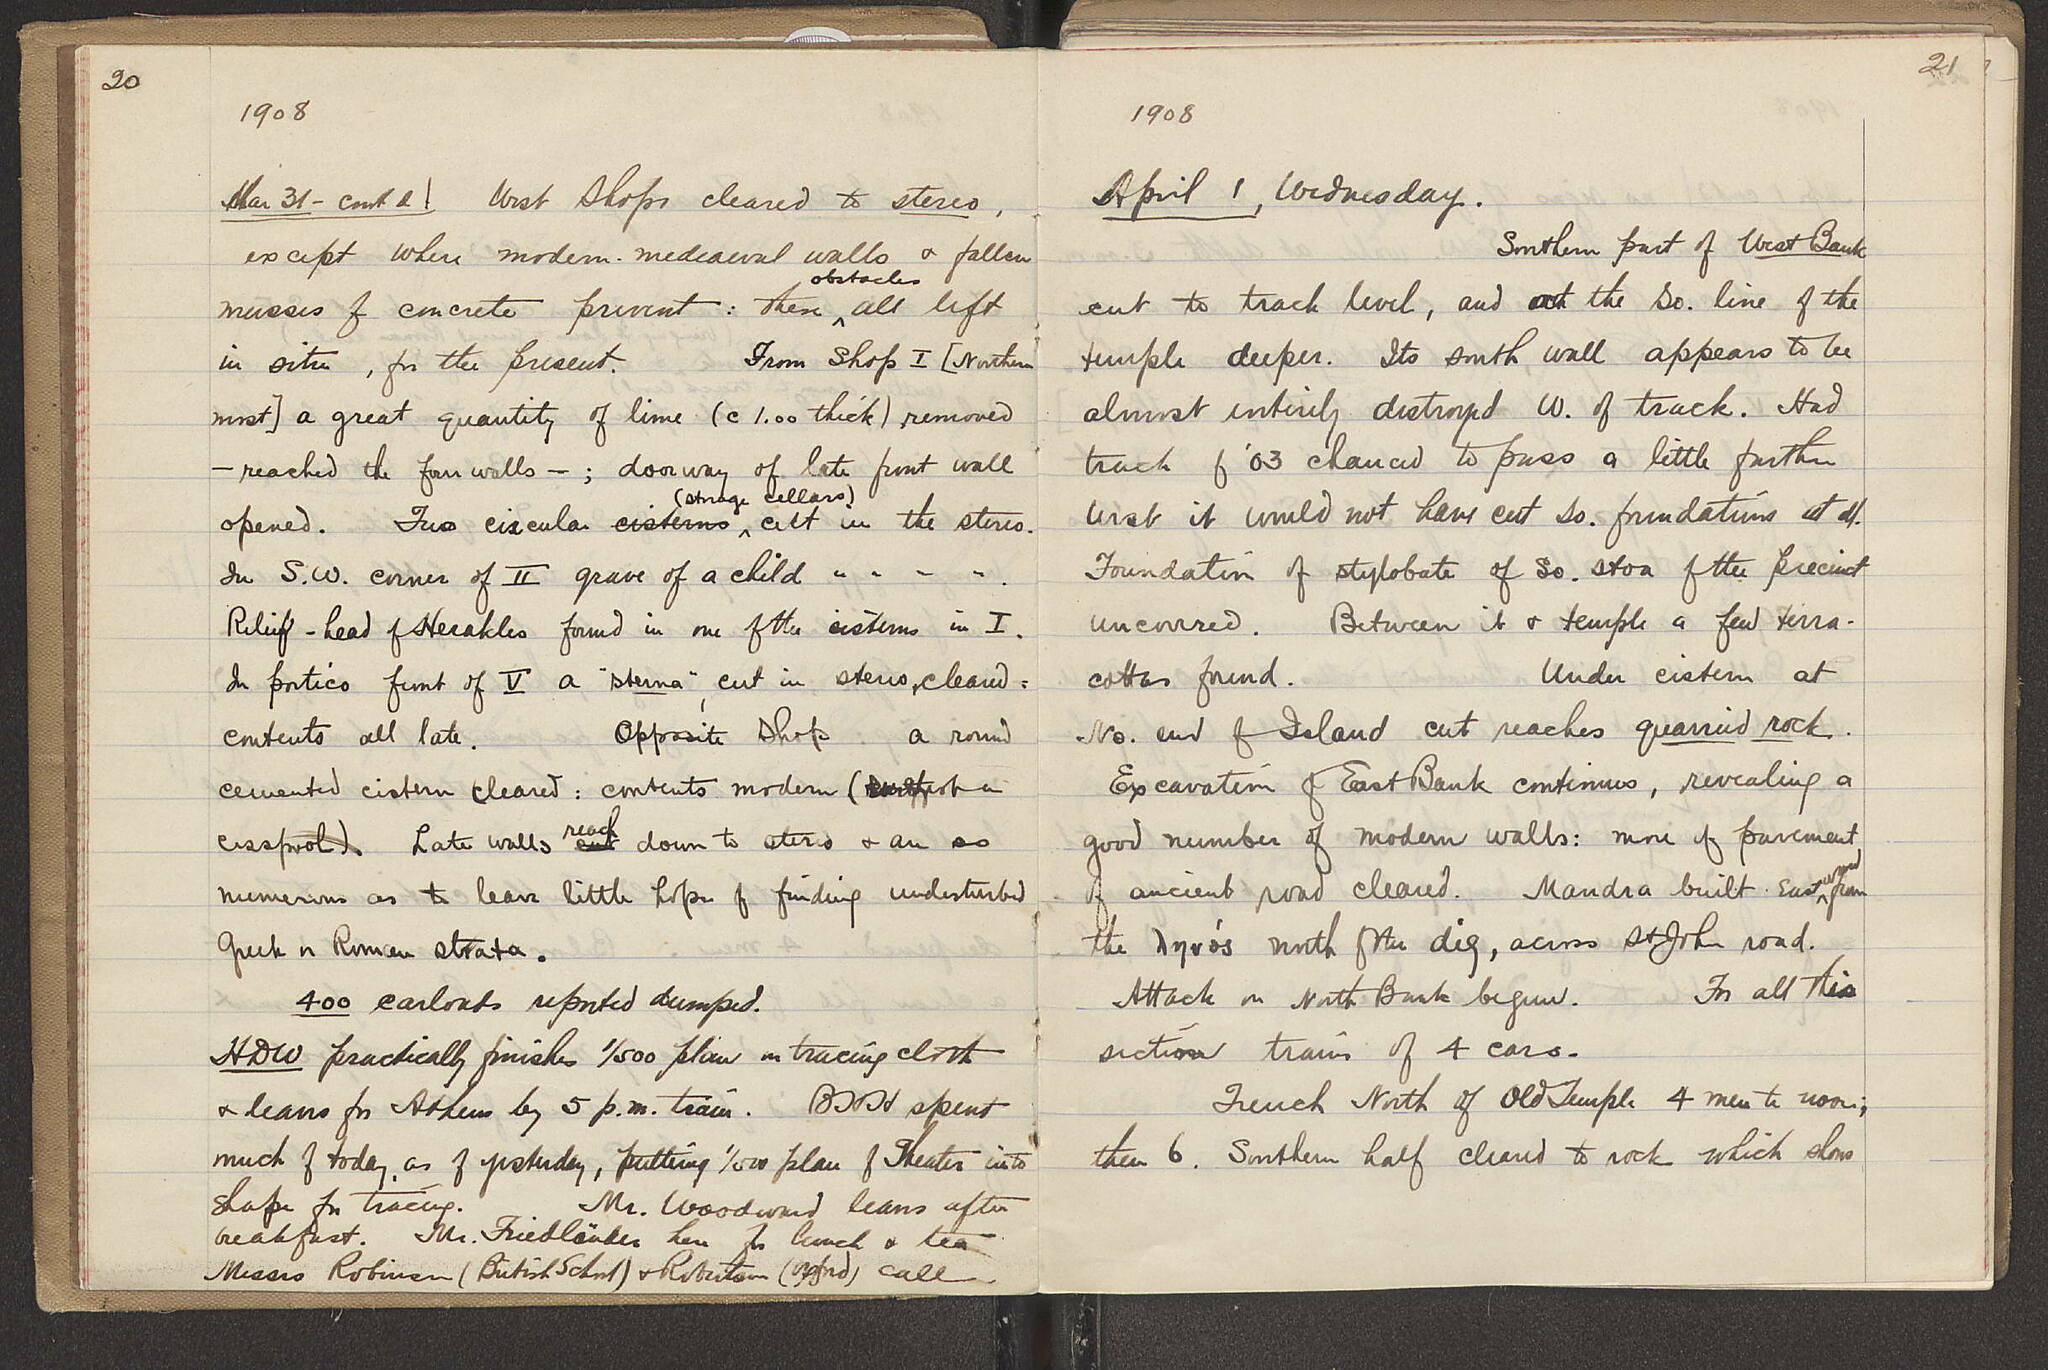 20
1908
Mar 31 - cont'd | West Shops cleared to stereo,
except where modern-mediaeval walls & fallen
obstacles
masses of concrete prevent: these ^ all left
in situ, for the present. From Shop I [Northern
most] a great quantity of lime (c 1.00 thick) removed
- reached the four walls - ; doorway of late front wall
(storage cellars)
opened. Two circular cisterns ^ cut in the stereo.
In S.W. corner of II grave of a child " " " ".
Relief-head of Herakles found in one of the cisterns in I.
In portico front of V a "sterna", cut in stereo, cleared:
contents all late. Opposite Shop a round
cemented cistern cleared: contents modern ( not a
cesspool). Late walls cut reach down to stereo & are so
numerous as to leave little hope of finding undisturbed
Greek or Roman strata.
400 carloads reported dumped.
HDW practically finishes 1/500 plan on tracing cloth
& leaves for Athens by 5 p.m. train. BHH spent
much of today, as of yesterday, putting 1/500 plan of Theater into
shape for tracing. Mr. Woodward leaves after
breakfast. Mr. Friedländer here for lunch & tea
Messrs Robinson (British School) & Robertson (Oxford) call
21
1908
April 1, Wednesday.
Southern part of West Bank
cut to track level, and at the So. line of the
temple deeper. Its south wall appears to be
almost entirely destroyed W. of track. Had
track of '03 chanced to pass a little farther
West it would not have cut So. foundations at all.
Foundation of stylobate of So. stoa of the precinct
uncovered. Between it & temple a few terra-
cottas found. Under cistern at
No. end of Island cut reaches quarried rock.
Excavation of East Bank continues, revealing a
good number of modern walls: more of pavement
of ancient road cleared. Mandra built East ^ from
the north of the dig, across St John road.
Attack on North Bank begun. For all this
section trains of 4 cars.
Trench North of Old Temple 4 men to noon;
then 6. Southern half cleared to rock which shows